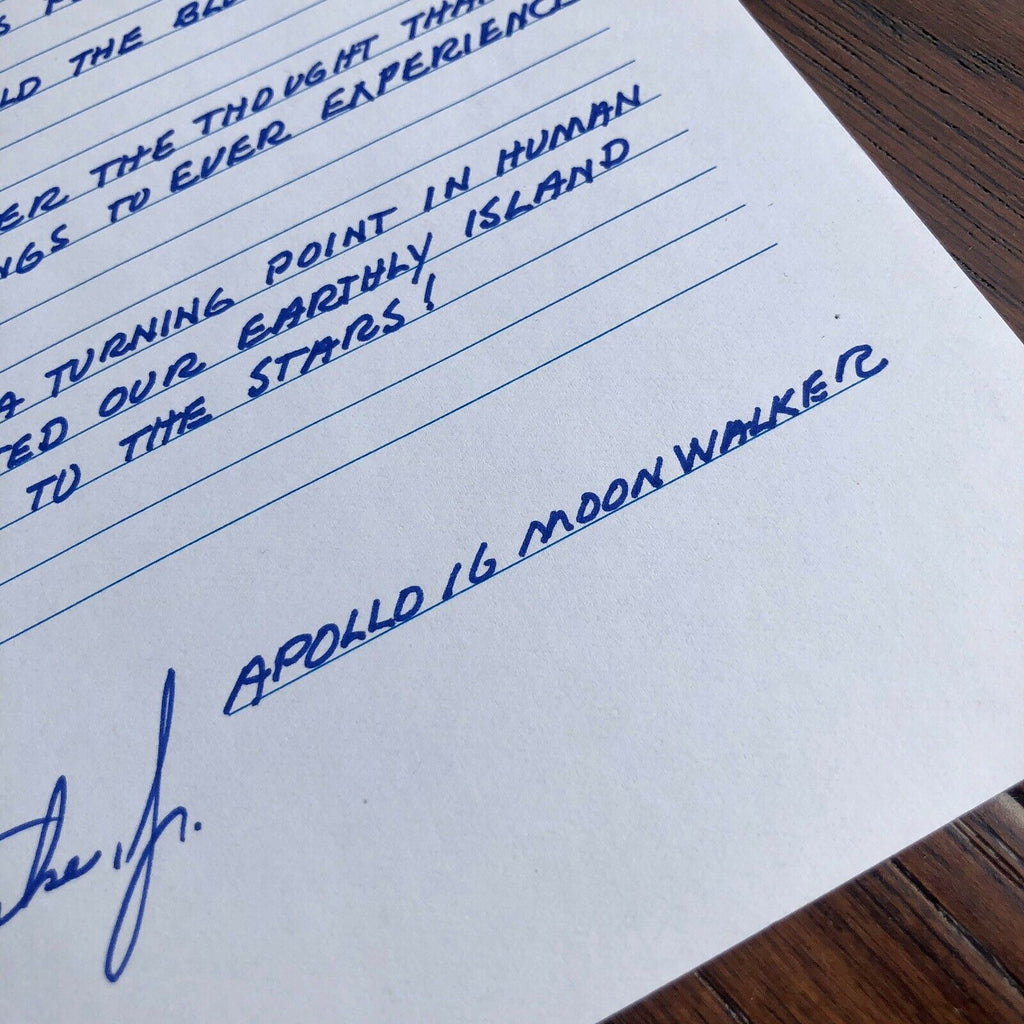 LD THE
ER THE THOUGHT
NGS TO EVER EXPERIENCE
A TURNING POINT IN HUMAN
TED OUR EARTHLY ISLAND
TO THE STARS!
APOLLO 16 MOON WALKER
ke, Jr.